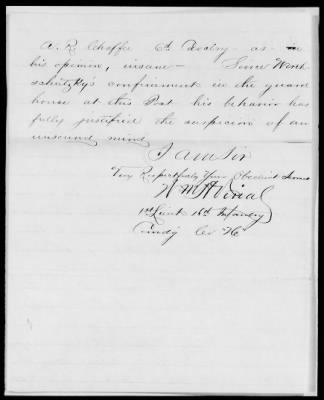 A. R. Chaffee 6th Cavalry - as - in
his opinion, insane - Since Wirth
schitzky's confinement in the guard
house at this Post his behavior has
fully justified the suspicion of an
unsound mind
I am Sir
Very Respectfully Your Obedient Servant
Wm H Vinal
1st Lieut 16th Infantry
Comdg Co "H"